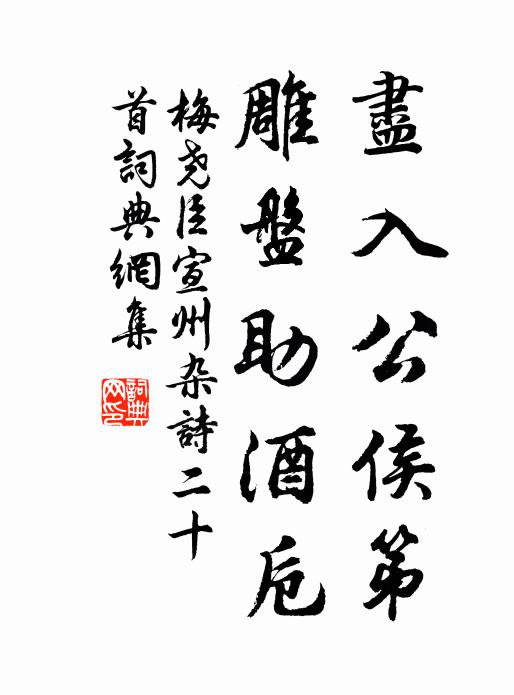 盡入公侯第
雕盤助酒卮
梅尧臣宣州杂詩二十
首詞典網集
詞典
网印